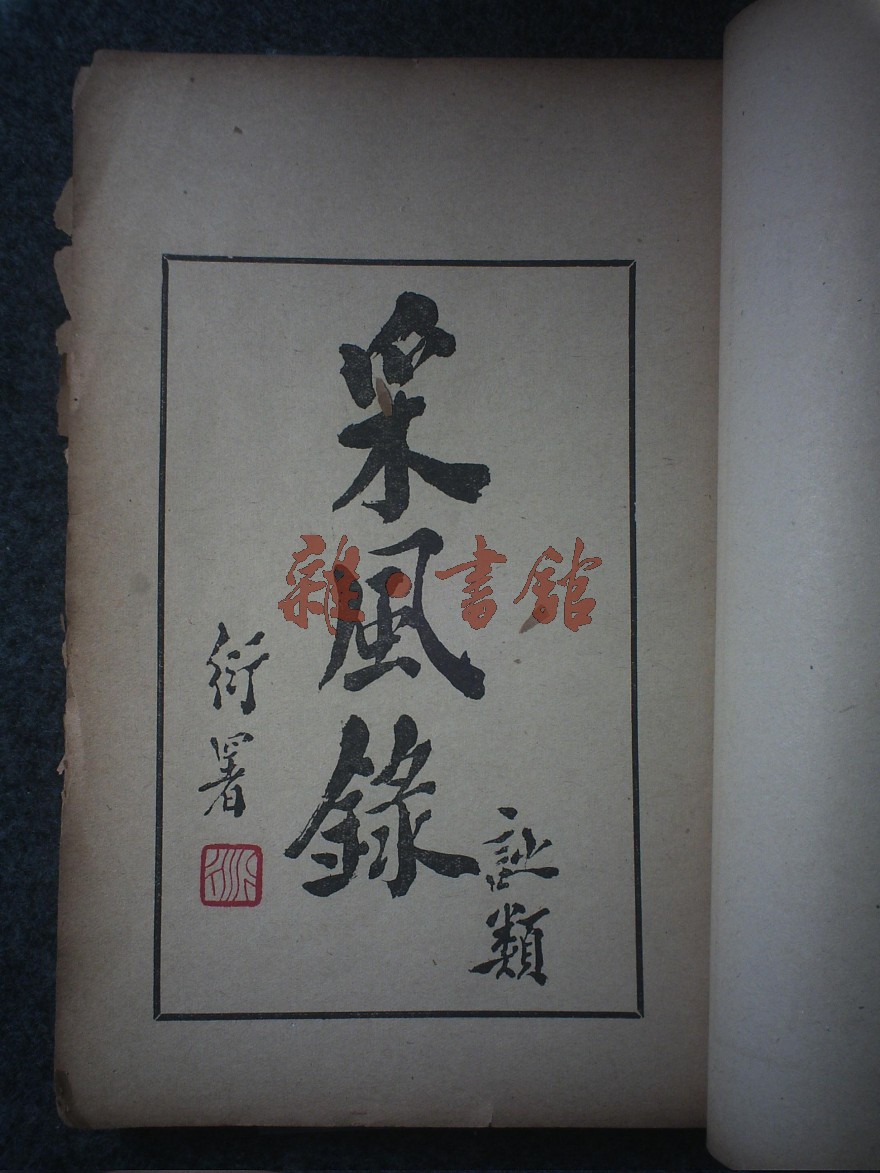 采風錄
詩類
衍署
衍
雜·書館